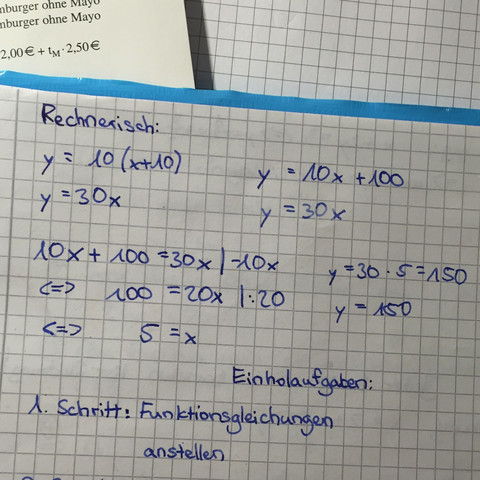 nburger ohne Mayo
nburger ohne Mayo
2,00€ + t_M · 2,50€
Rechnerisch:
y = 10(x+10)
y = 30x
y = 10x + 100
y = 30x
10x + 100 = 30x | -10x
<=> 100 = 20x | :20
<=> 5 = x
y = 30 · 5 = 150
y = 150
Einholaufgaben:
1. Schritt: Funktionsgleichungen
anstellen